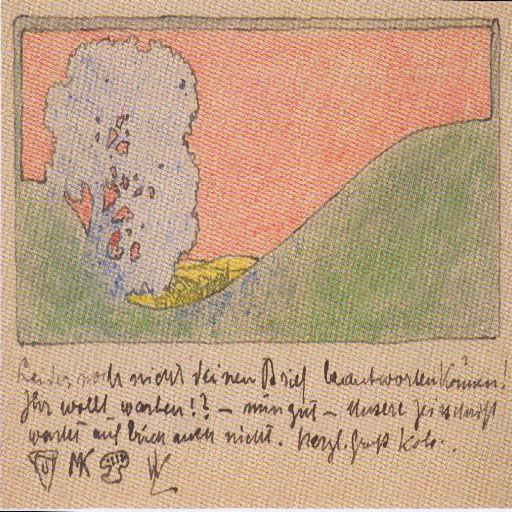 Leider noch nicht deinen Brief beantworten können!
Ihr wollt warten!? – nun gut – Unsere
wartet auf Euch auch nicht. Herzl. Gruß Kolo.
MK